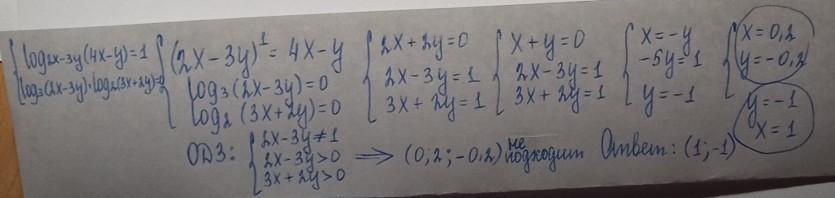 log₂ₓ₋₃ᵧ(4x-y)=1
log₃(2x-3y)·log₂(3x+2y)=0
(2x-3y)¹=4x-y
log₃(2x-3y)=0
log₂(3x+2y)=0
2x+2y=0
2x-3y=1
3x+2y=1
x+y=0
2x-3y=1
3x+2y=1
x=-y
-5y=1
y=-1
x=0,2
y=-0,2
y=-1
x=1
ОДЗ:
2x-3y≠1
2x-3y>0
3x+2y>0
⟹ (0;2;-0,2) не подходит Ответ: (1;-1)